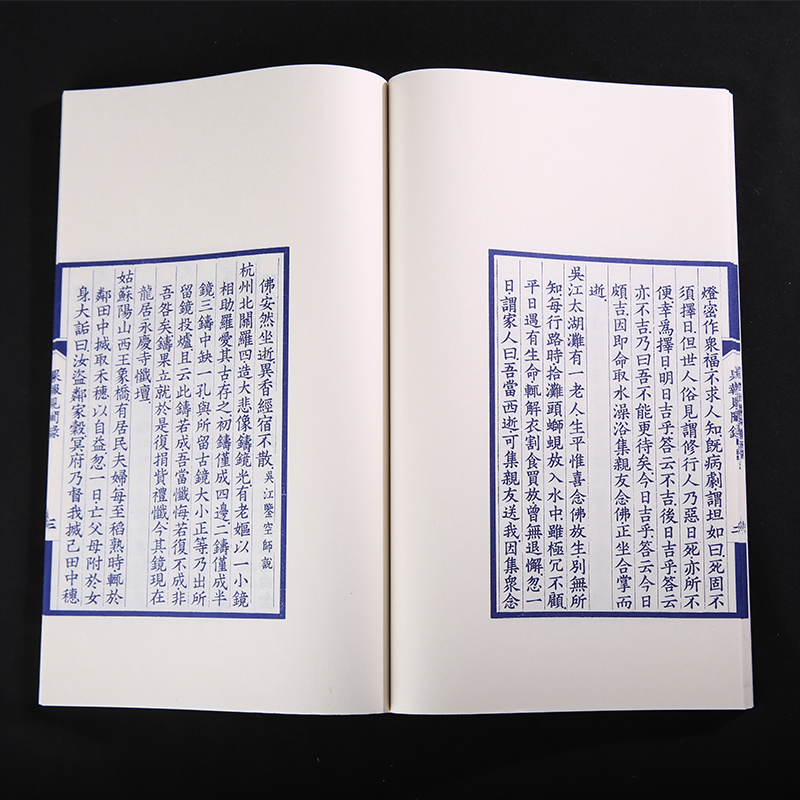 燈密作衆福不求人知旣病劇謂坦如曰死固不
須擇日但世人俗見謂修行人乃惡日死亦所不
便幸為擇日明日吉乎答云不吉後日吉乎答云
亦不吉乃曰吾不能更待矣今日吉乎答云今日
頗吉因即命取水澡浴集親友念佛正坐合掌而
逝
吳江太湖灘有一老人生平惟喜念佛放生別無所
知每行路時拾灘頭螄蜆放入水中雖極冗不顧
平日遇有生命輒解衣割食買放曾無退懈忽一
日謂家人曰吾當西逝可集親友送我因集衆念
佛安然坐逝異香經宿不散 吳江鑒空師説
杭州北關羅四造大悲像鑄鏡光有老嫗以一小鏡
相助羅愛其古存之初鑄僅成四邊二鑄僅成半
鏡三鑄中缺一孔與所留古鏡大小正等乃出所
留鏡投爐且云此鑄若成吾當懺悔若復不成非
吾咎矣鑄果立就於是復捐貲禮懺今其鏡現在
龍居永慶寺懺壇
姑蘇陽山西王象橋有居民夫婦每至稻熟時輒於
鄰田中搣取禾穗以自益忽一日亡父母附於女
身大詬曰汝盜鄰家穀冥府乃督我搣己田中穗
見聞錄